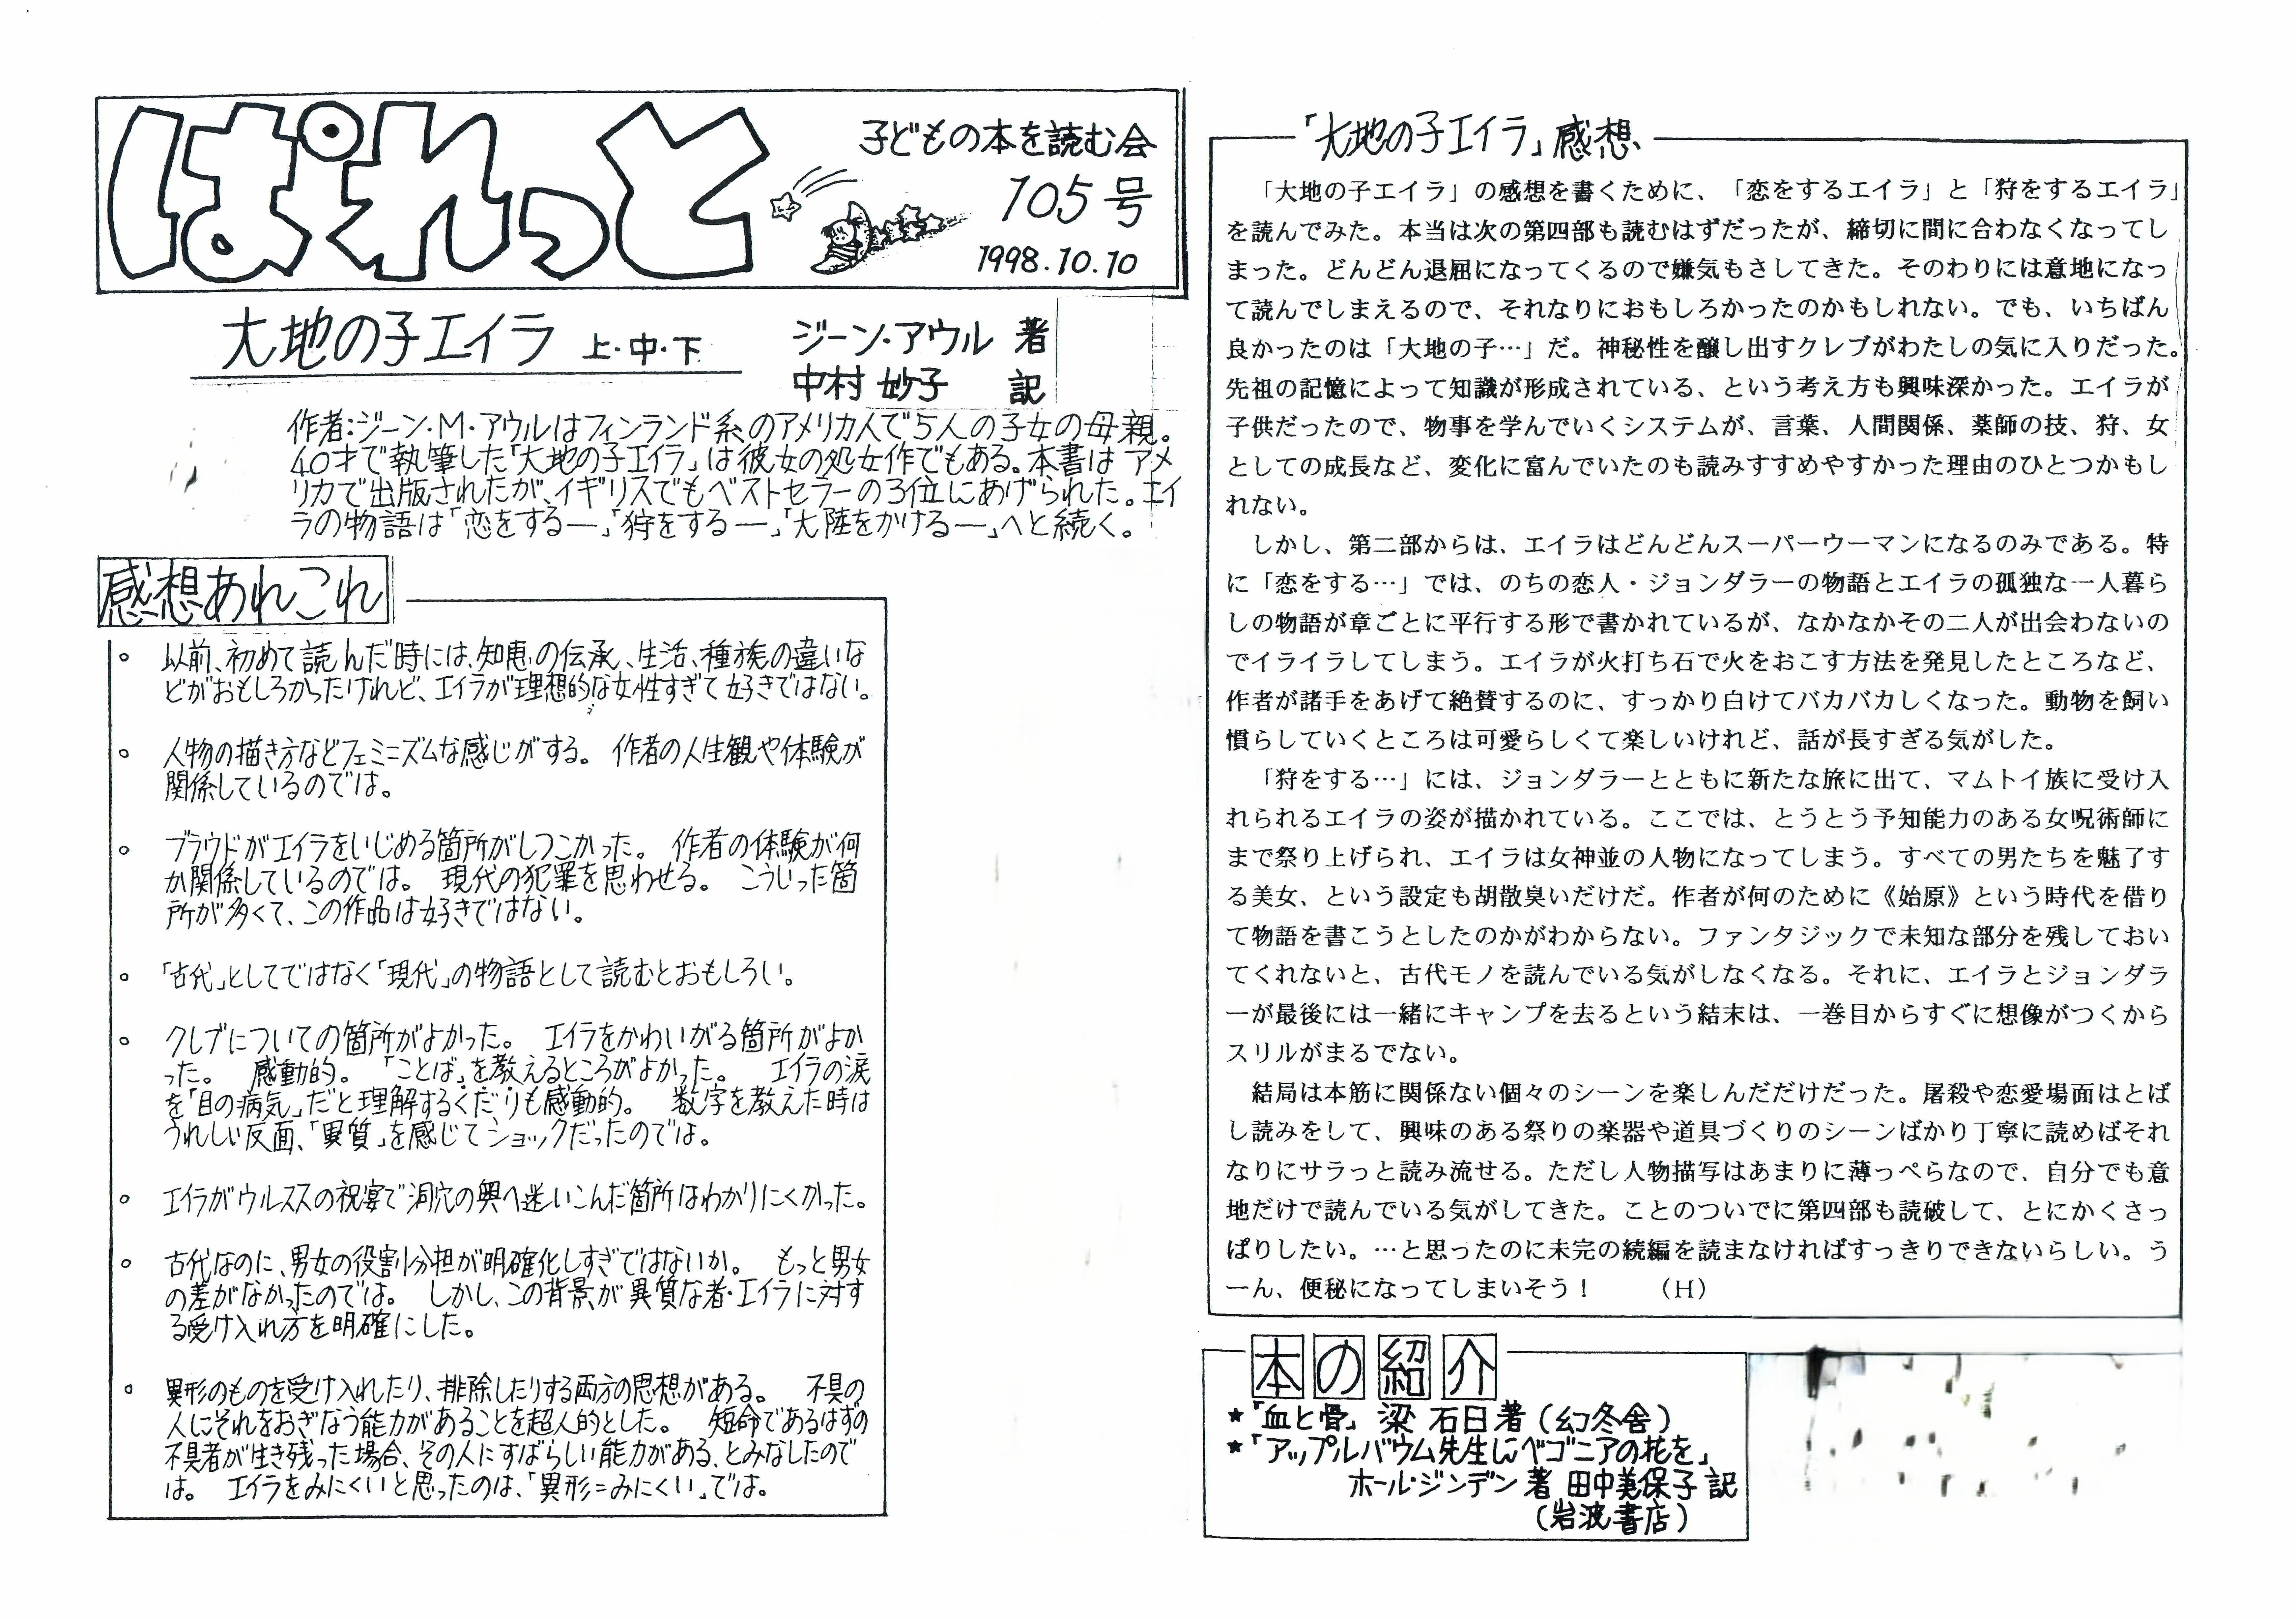 ぱれっと
子どもの本を読む会
105号
1998.10.10
大地の子エイラ 上・中・下
ジーン・アウル 著
中村 妙子 訳
作者:ジーン・M・アウルはフィンランド系のアメリカ人で5人の子女の母親。
40才で執筆した「大地の子エイラ」は彼女の処女作でもある。本書はアメ
リカで出版されたが、イギリスでもベストセラーの3位にあげられた。エイ
ラの物語は「恋をする―」「狩をする―」「大陸をかける―」へと続く。
感想あれこれ
。以前、初めて読んだ時には、知恵の伝承、生活、種族の違いな
どがおもしろかったけれど、エイラが理想的な女性すぎて好きではない。
。人物の描き方などフェミニズムな感じがする。 作者の人生観や体験が
関係しているのでは。
。ブラウドがエイラをいじめる箇所がしつこかった。 作者の体験が何
か関係しているのでは。 現代の犯罪を思わせる。 こういった箇
所が多くて、この作品は好きではない。
。「古代」としてではなく「現代」の物語として読むとおもしろい。
。クレブについての箇所がよかった。 エイラをかわいがる箇所がよか
った。 感動的。 「ことば」を教えるところがよかった。 エイラの涙
を「目の病気」だと理解するくだりも感動的。 数字を教えた時は
うれしい反面、「異質」を感じてショックだったのでは。
。エイラがウルススの祝宴で洞穴の奥へ迷いこんだ箇所はわかりにくかった。
。古代なのに、男女の役割分担が明確化しすぎではないか。 もっと男女
の差がなかったのでは。 しかし、この背景が異質な者・エイラに対す
る受け入れ方を明確にした。
。異形のものを受け入れたり、排除したりする両方の思想がある。 不具の
人にそれをおぎなう能力があることを超人的とした。 短命であるはずの
不具者が生き残った場合、その人にすばらしい能力がある、とみなしたので
は。 エイラをみにくいと思ったのは、「異形=みにくい」では。
「大地の子エイラ」感想
「大地の子エイラ」の感想を書くために、「恋をするエイラ」と「狩をするエイラ」
を読んでみた。本当は次の第四部も読むはずだったが、締切に間に合わなくなってし
まった。どんどん退屈になってくるので嫌気もさしてきた。そのわりには意地になっ
て読んでしまえるので、それなりにおもしろかったのかもしれない。でも、いちばん
良かったのは「大地の子…」だ。神秘性を醸し出すクレブがわたしの気に入りだった。
先祖の記憶によって知識が形成されている、という考え方も興味深かった。エイラが
子供だったので、物事を学んでいくシステムが、言葉、人間関係、薬師の技、狩、女
としての成長など、変化に富んでいたのも読みすすめやすかった理由のひとつかもし
れない。
しかし、第二部からは、エイラはどんどんスーパーウーマンになるのみである。特
に「恋をする…」では、のちの恋人・ジョンダラーの物語とエイラの孤独な一人暮ら
しの物語が章ごとに平行する形で書かれているが、なかなかその二人が出会わないの
でイライラしてしまう。エイラが火打ち石で火をおこす方法を発見したところなど、
作者が諸手をあげて絶賛するのに、すっかり白けてバカバカしくなった。動物を飼い
慣らしていくところは可愛らしくて楽しいけれど、話が長すぎる気がした。
「狩をする…」には、ジョンダラーとともに新たな旅に出て、マムトイ族に受け入
れられるエイラの姿が描かれている。ここでは、とうとう予知能力のある女呪術師に
まで祭り上げられ、エイラは女神並の人物になってしまう。すべての男たちを魅了す
る美女、という設定も胡散臭いだけだ。作者が何のために《始原》という時代を借り
て物語を書こうとしたのかがわからない。ファンタジックで未知な部分を残しておい
てくれないと、古代モノを読んでいる気がしなくなる。それに、エイラとジョンダラ
ーが最後には一緒にキャンプを去るという結末は、一巻目からすぐに想像がつくから
スリルがまるでない。
結局は本筋に関係ない個々のシーンを楽しんだだけだった。屠殺や恋愛場面はとば
し読みをして、興味のある祭りの楽器や道具づくりのシーンばかり丁寧に読めばそれ
なりにサラっと読み流せる。ただし人物描写はあまりに薄っぺらなので、自分でも意
地だけで読んでいる気がしてきた。ことのついでに第四部も読破して、とにかくさっ
ぱりしたい。…と思ったのに未完の続編を読まなければすっきりできないらしい。う
ーん、便秘になってしまいそう! (H)
本の紹介
★「血と骨」 梁 石日著(幻冬舎)
★「アップルバウム先生にベゴニアの花を」
ホール・ジンデン著 田中美保子訳
(岩波書店)